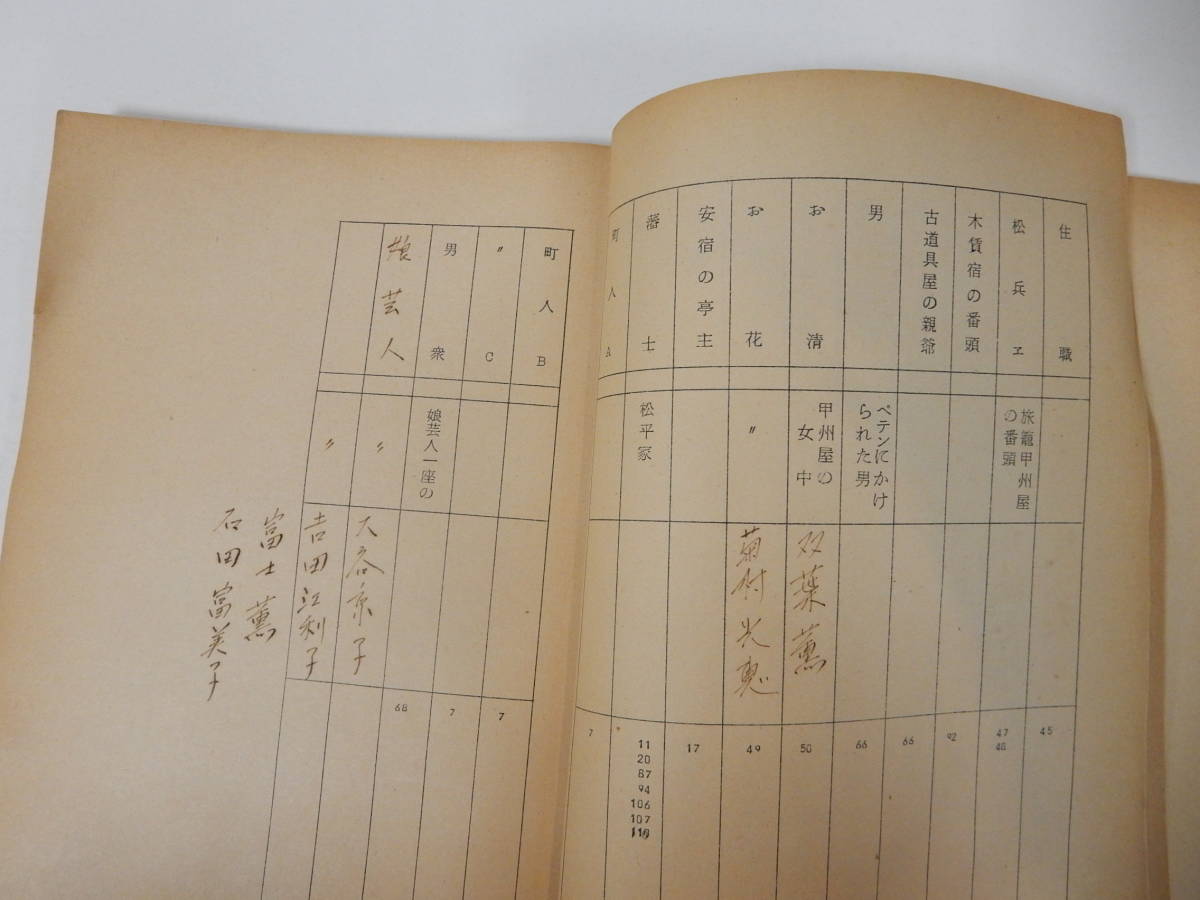 住職
45
松兵ヱ
旅籠甲州屋
の番頭
47
48
木賃宿の番頭
92
古道具屋の親爺
66
男
ペテンにかけ
られた男
66
お清
甲州屋の
女中
双葉薫
50
お花
〃
菊村光恵
49
安宿の亭主
17
藩士
松平家
11
20
87
94
106
107
町人A
7
町人B
〃C
7
男衆
娘芸人一座の
7
娘芸人
〃
大谷京子
68
〃
吉田江利子
富士薫
石田富美子